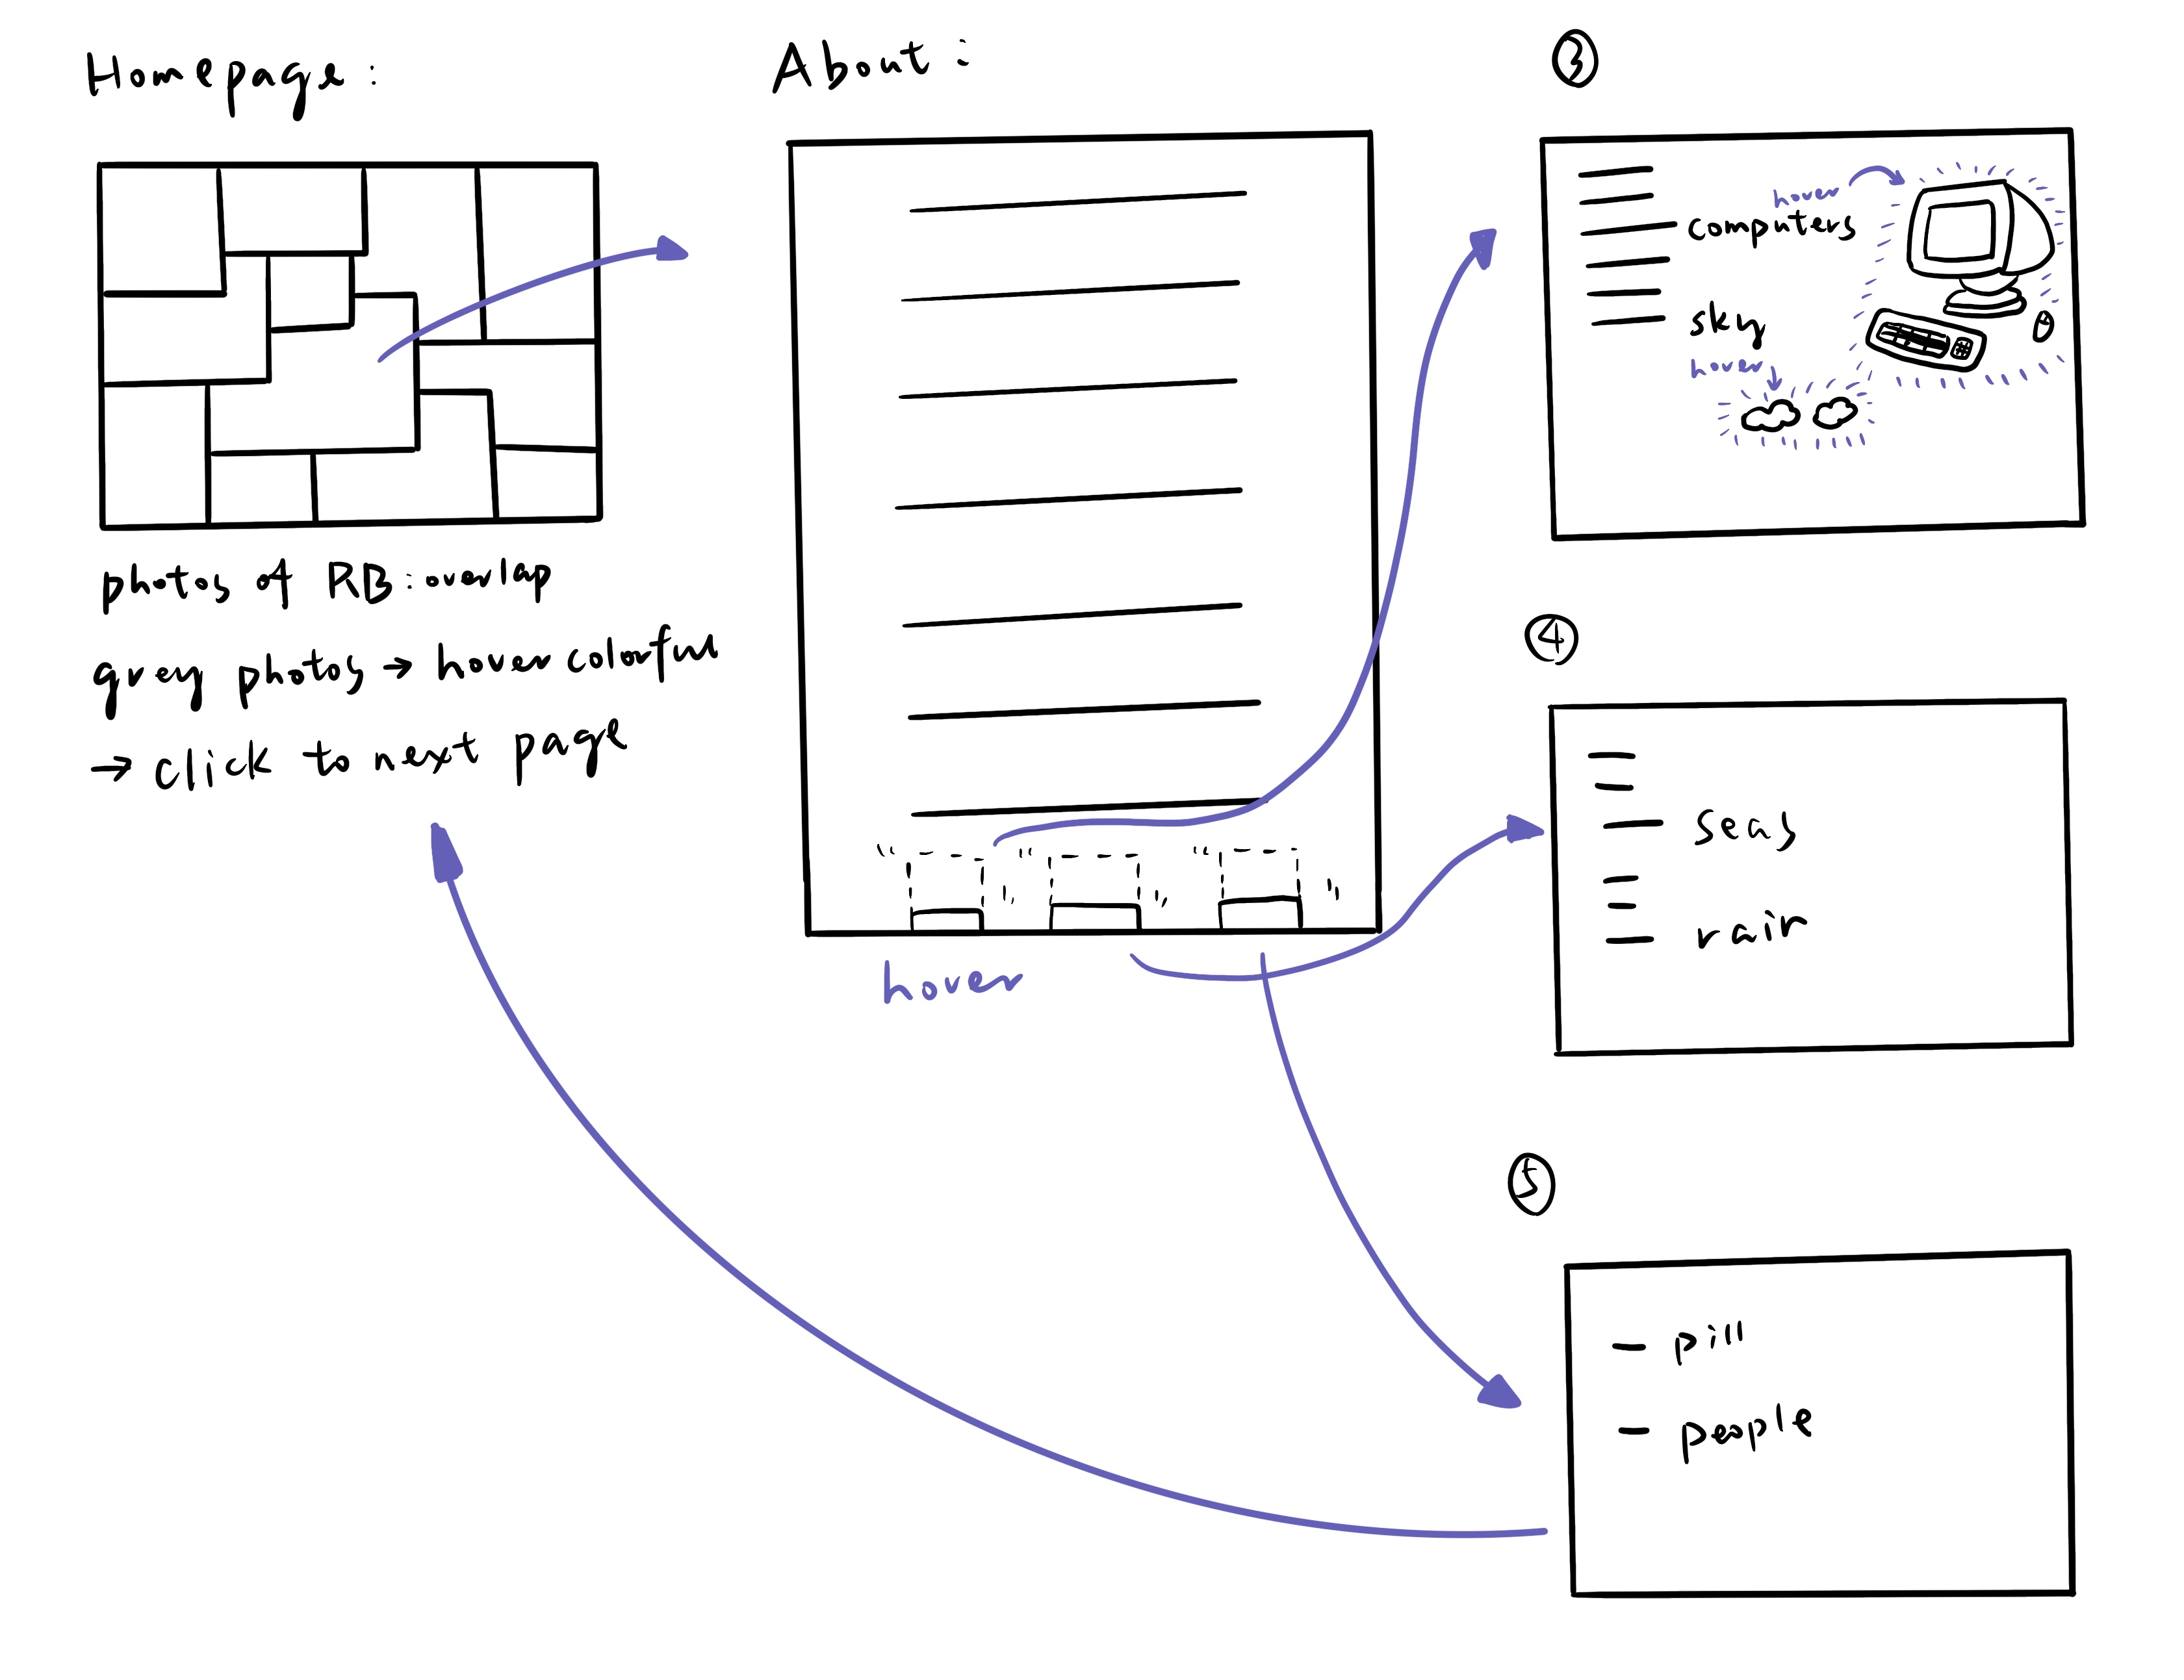 Homepage:
photos of RB: overlap
grey photos → hover colorful
→ click to next page
About:
hover
③
hover
computers
sky
hover
④
seas
rain
⑤
– pill
– people